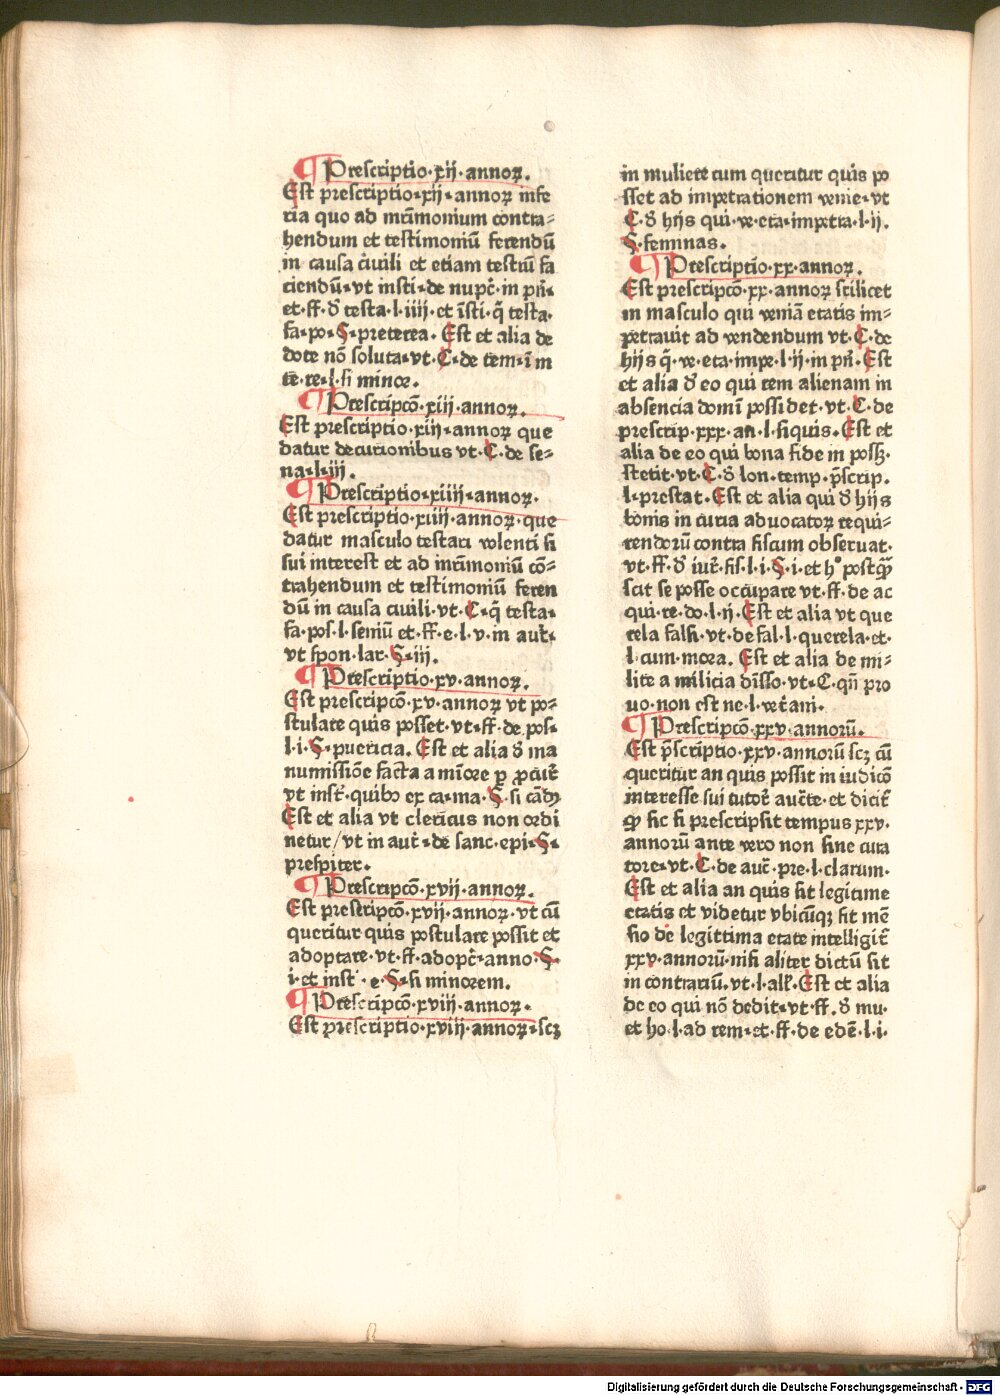 ¶ Prescriptio·xij·annoꝝ.
Est prescriptio·xij·annoꝝ infe
ria quo ad mr̄imonium contra⸗
hendum et testimoniū ferendū
in causa ciuili et etiam testiū fa
ciendū·vt insti·de nupc̄·in prī·
et·ff·ꝺ̄ testa·l·iiij·et īsti·q̄ testa·
fa·po·§·preterea. Est et alia de
dote nō soluta·vt·C·de tem·ī m
te·re·l·si minor.
¶ Prescripcō·xiij·annoꝝ.
Est prescriptio·xiij·annoꝝ que
datur decurionibus vt·C·de se⸗
na·l·iij.
¶ Prescriptio·xiiij·annoꝝ.
Est prescriptio·xiiij·annoꝝ·que
datur masculo testari volenti si
sui interest et ad mr̄imoniū cō⸗
trahendum et testimoniū feren
dū in causa ciuili·vt·C·q̄ testa·
fa·pos·l·seniū et·ff·e·l·v·m aut̄·
vt spon·lar·§·iii.
¶ Prescriptio·xv·annoꝝ.
Est prescripcō·xv·annoꝝ vt po⸗
stulare quis posset·vt·ff·de pos·
l·i·§·puericia. Est et alia ꝺ̄ ma
numissiōe facta a mīore ꝑ ꝓcut̄
vt inst̄·quibo ex ca·ma·§·si
Est et alia vt clericus non ordi
netur/vt in aut̄·de sanc·epi·§·
prespiter.
¶ Prescripcō·xvij·annoꝝ.
Est prescripcō·xvij·annoꝝ·vt cū
queritur quis postulare possit et
adoptare·vt·ff·adopc̄·anno·§·
i·et inst̄·e·§·si minorem.
¶ Prescripcō·xviij·annoꝝ.
Est prescriptio·xviij·annoꝝ·scꝫ
in muliere cum queritur quis po
sset ad impetrationem venie·vt
C·ꝺ̄ hijs qui·ve·eta·impetra·l·ij.
§·feminas.
¶ Prescriptio·xx·annoꝝ.
Est prescripcō·xx·annoꝝ scilicet
in masculo qui veniā etatis im⸗
petrauit ad vendendum vt·C·de
hijs q̄·ve·eta·impe·l·ij·in prī·Est
et alia ꝺ̄ eo qui rem alienam in
absencia domī possidet·vt·C·de
prescrip·xxx·an·l·siquis. Est et
alia de eo qui bona fide in possꝫ·
stetit·vt·C·ꝺ̄ lon·temp·p̄scrip.
l·prestat. Est et alia qui ꝺ̄ hijs
bonis in curia aduocatoꝝ requi⸗
rendorū contra fiscum obseruat·
vt·ff·ꝺ̄ iur̄·fis·l·i·§·i·et h° postq̄ꝫ
scit se posse occupare vt·ff·de ac
qui·re·do·l·ij·Est et alia vt que
rela falsi·vt·de fal·l·querela·et·
l·cum·mora. Est et alia de mi⸗
lite a milicia dīsso·vt·C·qn̄ pro
uo·non est ne·l·vet̄ani·
¶ Prescripcō·xxv·annorū.
Est p̄scriptio·xxv·annorū scꝫ cū
queritur an quis possit in iudicō
interesse sui tutor̄ auct̄e·et dicit̄
ꝙ sic si prescripsit tempus xxv·
annorū ante vero non sine cura
tore·vt·C·de auc̄·pre·l·clarum·
Est et alia an quis sit legitime
etatis et videtur vbicūqꝫ sit mē
sio de legittima etate intelligit̄
xxv·annorū·nisi aliter dictū sit
in contrariū·vt·l·ali·Est et alia
de eo qui nō dedit·vt·ff·ꝺ̄ mu·
et ho·l·ad rem·et·ff·de edē·l·i·
Digitalisierung gefördert durch die Deutsche Forschungsgemeinschaft · DFG